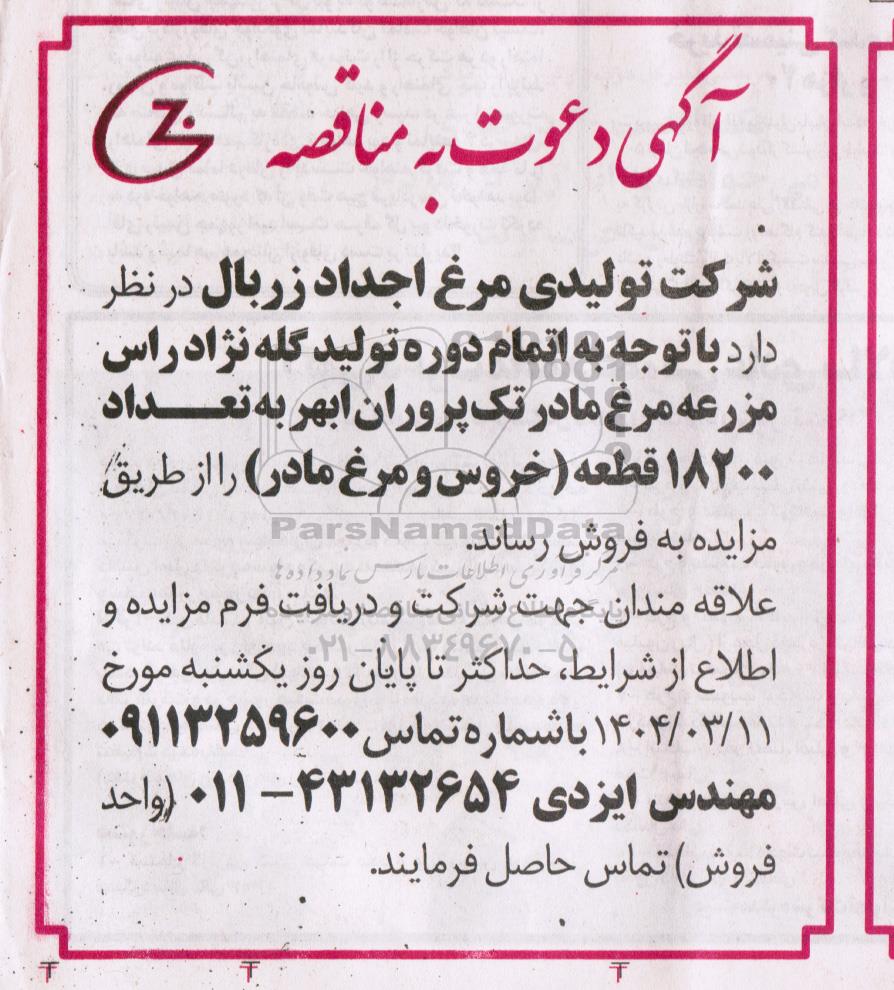 آگهی دعوت به مناقصه
شرکت تولیدی مرغ اجداد زربال در نظر
دارد با توجه به اتمام دوره تولید گله نژاد راس
مزرعه مرغ مادر تک پروران ابهر به تعداد
۱۸۲۰۰ قطعه (خروس و مرغ مادر) را از طریق
مزایده به فروش رساند.
ParsNamadData
علاقه مندان جهت شرکت و دریافت فرم مزایده و
۰۲۱-۸۸۳۴۹۶۷۰-۵
اطلاع از شرایط، حداکثر تا پایان روز یکشنبه مورخ
۱۴۰۴/۰۳/۱۱ با شماره تماس ۰۹۱۱۳۲۵۹۶۰۰
مهندس ایزدی ۴۳۱۳۲۶۵۴-۰۱۱ (واحد
فروش) تماس حاصل فرمایند.